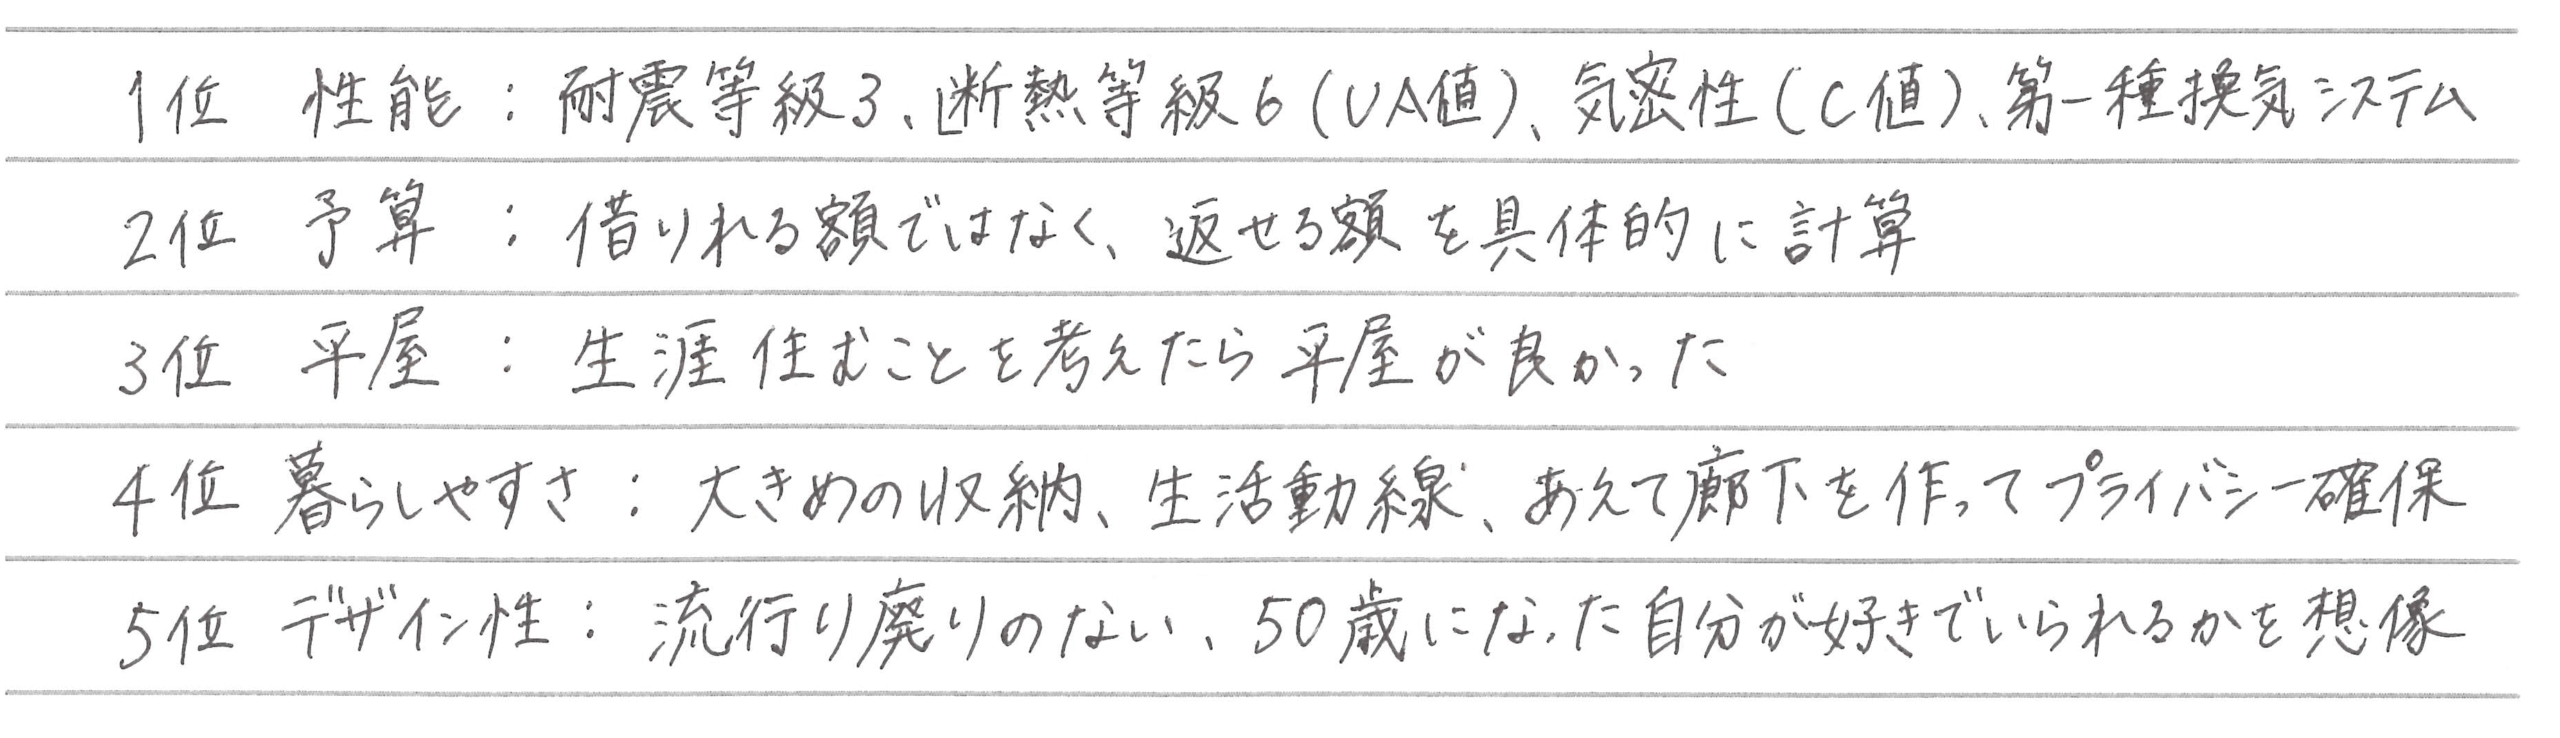 1位 性能：耐震等級3、断熱等級6(UA値)、気密性(C値)、第一種換気システム
2位 予算：借りれる額ではなく、返せる額を具体的に計算
3位 平屋：生涯住むことを考えたら平屋が良かった
4位 暮らしやすさ：大きめの収納、生活動線、あえて廊下を作ってプライバシー確保
5位 デザイン性：流行り廃りのない、50歳になった自分が好きでいられるかを想像